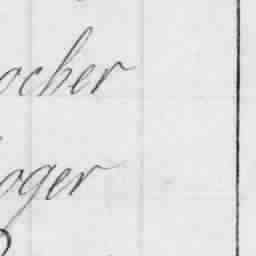 ocher
oger